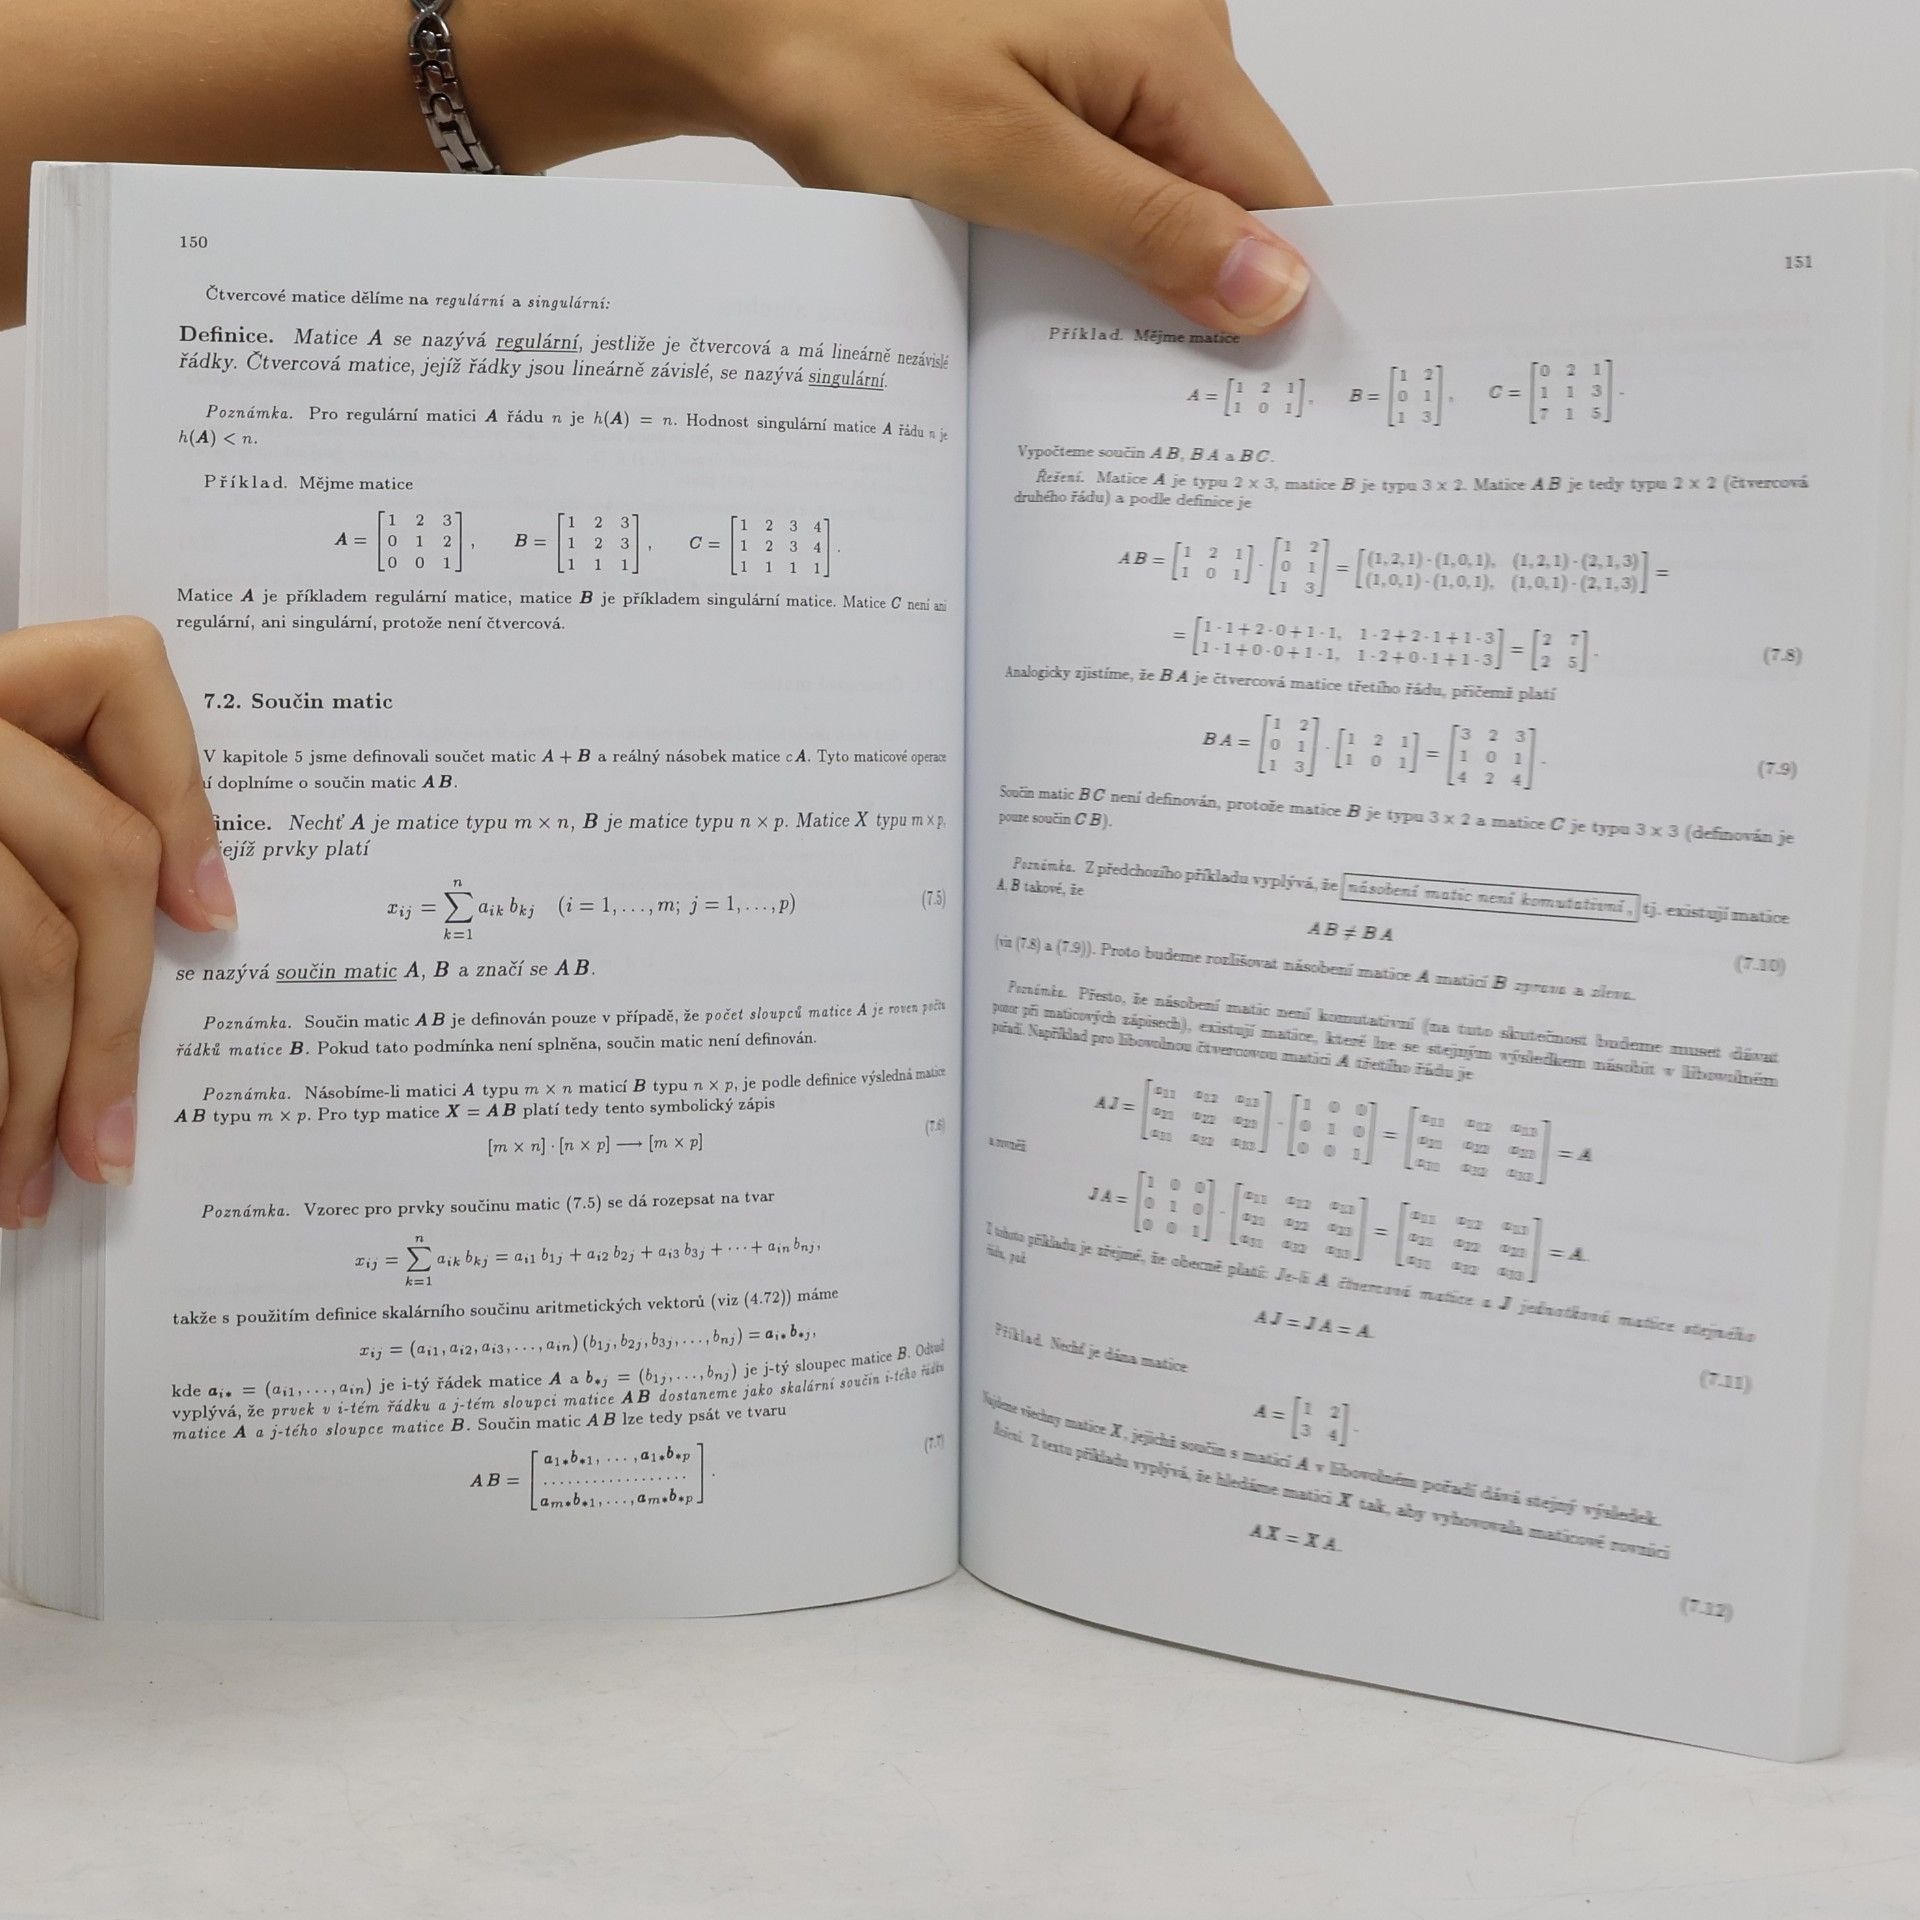 150
Čtvercové matice dělíme na regulární a singulární:
Definice. Matice A se nazývá regulární, jestliže je čtvercová a má lineárně nezávislé
řádky. Čtvercová matice, jejíž řádky jsou lineárně závislé, se nazývá singulární.
Poznámka. Pro regulární matici A řádu n je h(A) = n. Hodnost singulární matice A řádu n je
h(A) < n.
Příklad. Mějme matice
A = [1 2 3; 0 1 2; 0 0 1], B = [1 2 3; 1 2 3; 1 1 1], C = [1 2 3 4; 1 2 3 4; 1 1 1 1].
Matice A je příkladem regulární matice, matice B je příkladem singulární matice. Matice C není ani
regulární, ani singulární, protože není čtvercová.
7.2. Součin matic
V kapitole 5 jsme definovali součet matic A + B a reálný násobek matice cA. Tyto maticové operace
í doplníme o součin matic AB.
inice. Nechť A je matice typu m × n, B je matice typu n × p. Matice X typu m × p,
jejíž prvky platí
x_{ij} = ∑_{k=1}^{n} a_{ik} b_{kj} (i = 1, ..., m; j = 1, ..., p) (7.5)
se nazývá součin matic A, B a značí se AB.
Poznámka. Součin matic AB je definován pouze v případě, že počet sloupců matice A je roven počtu
řádků matice B. Pokud tato podmínka není splněna, součin matic není definován.
Poznámka. Násobíme-li matici A typu m × n maticí B typu n × p, je podle definice výsledná matice
AB typu m × p. Pro typ matice X = AB platí tedy tento symbolický zápis
[m × n] · [n × p] ⟶ [m × p] (7.6)
Poznámka. Vzorec pro prvky součinu matic (7.5) se dá rozepsat na tvar
x_{ij} = ∑_{k=1}^{n} a_{ik} b_{kj} = a_{i1} b_{1j} + a_{i2} b_{2j} + a_{i3} b_{3j} + ··· + a_{in} b_{nj},
takže s použitím definice skalárního součinu aritmetických vektorů (viz (4.72)) máme
x_{ij} = (a_{i1}, a_{i2}, a_{i3}, ..., a_{in}) (b_{1j}, b_{2j}, b_{3j}, ..., b_{nj}) = a_{i*} b_{*j},
kde a_{i*} = (a_{i1}, ..., a_{in}) je i-tý řádek matice A a b_{*j} = (b_{1j}, ..., b_{nj}) je j-tý sloupec matice B. Odtud
vyplývá, že prvek v i-tém řádku a j-tém sloupci matice AB dostaneme jako skalární součin i-tého řádku
matice A a j-tého sloupce matice B. Součin matic AB lze tedy psát ve tvaru
AB = [a_{1*}b_{*1}, ..., a_{1*}b_{*p}; ...................; a_{m*}b_{*1}, ..., a_{m*}b_{*p}]. (7.7)
151
Příklad. Mějme matice
A = [1 2 1; 1 0 1], B = [1 2; 0 1; 1 3], C = [0 2 1; 1 1 3; 7 1 5].
Vypočteme součin AB, BA a BC.
Řešení. Matice A je typu 2 × 3, matice B je typu 3 × 2. Matice AB je tedy typu 2 × 2 (čtvercová
druhého řádu) a podle definice je
AB = [1 2 1; 1 0 1] · [1 2; 0 1; 1 3] = [(1,2,1)·(1,0,1), (1,2,1)·(2,1,3); (1,0,1)·(1,0,1), (1,0,1)·(2,1,3)] =
= [1·1+2·0+1·1, 1·2+2·1+1·3; 1·1+0·0+1·1, 1·2+0·1+1·3] = [2 7; 2 5]. (7.8)
Analogicky zjistíme, že BA je čtvercová matice třetího řádu, přičemž platí
BA = [1 2; 0 1; 1 3] · [1 2 1; 1 0 1] = [3 2 3; 1 0 1; 4 2 4]. (7.9)
Součin matic BC není definován, protože matice B je typu 3 × 2 a matice C je typu 3 × 3 (definován je
pouze součin CB).
Poznámka. Z předchozího příkladu vyplývá, že násobení matic není komutativní, tj. existují matice
A, B takové, že
AB ≠ BA (7.10)
(viz (7.8) a (7.9)). Proto budeme rozlišovat násobení matice A maticí B zprava a zleva.
Poznámka. Přesto, že násobení matic není komutativní (na tuto skutečnost budeme muset dávat
pozor při maticových zápisech), existují matice, které lze se stejným výsledkem násobit v libovolném
pořadí. Například pro libovolnou čtvercovou matici A třetího řádu je
AJ = [a_{11} a_{12} a_{13}; a_{21} a_{22} a_{23}; a_{31} a_{32} a_{33}] · [1 0 0; 0 1 0; 0 0 1] = [a_{11} a_{12} a_{13}; a_{21} a_{22} a_{23}; a_{31} a_{32} a_{33}] = A
a rovněž
JA = [1 0 0; 0 1 0; 0 0 1] · [a_{11} a_{12} a_{13}; a_{21} a_{22} a_{23}; a_{31} a_{32} a_{33}] = [a_{11} a_{12} a_{13}; a_{21} a_{22} a_{23}; a_{31} a_{32} a_{33}] = A.
Z tohoto příkladu je zřejmé, že obecně platí: Je-li A čtvercová matice a J jednotková matice stejného
řádu, pak
AJ = JA = A. (7.11)
Příklad. Nechť je dána matice
A = [1 2; 3 4].
Najdeme všechny matice X, jejichž součin s maticí A v libovolném pořadí dává stejný výsledek.
Řešení. Z textu příkladu vyplývá, že hledáme matici X tak, aby vyhovovala maticové rovnici
AX = XA. (7.12)